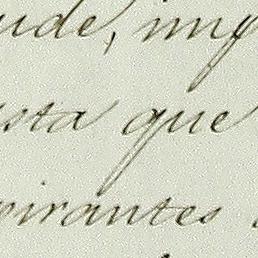 ude, imp
sta que
pirantes